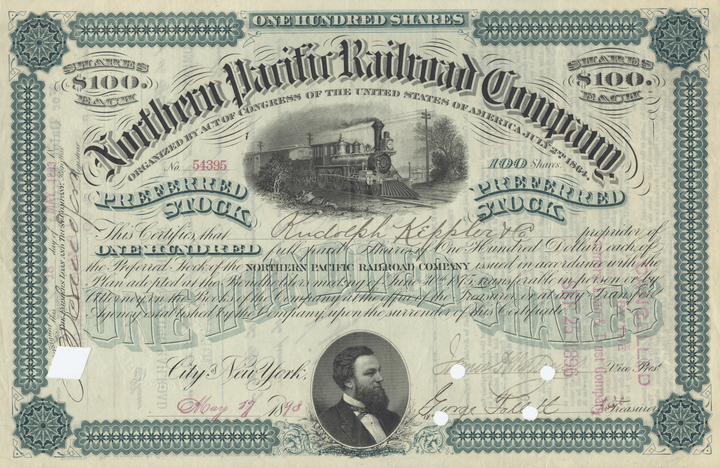 ONE HUNDRED SHARES
SHARES $100. EACH
SHARES $100. EACH
Northern Pacific Railroad Company.
ORGANIZED BY ACT OF CONGRESS OF THE UNITED STATES OF AMERICA JULY 2ND 1864.
No. 54395
100 Shares.
PREFERRED STOCK
PREFERRED STOCK
This Certifies that Rudolph Keppler & Co proprietor of
ONE HUNDRED full paid Shares of One Hundred Dollars each of
the Preferred Stock of the NORTHERN PACIFIC RAILROAD COMPANY issued in accordance with the
Plan adopted at the Bondholders meeting of June 30th 1875, transferable in person or by
Attorney on the Books of the Company at the office of the Treasurer or at any Transfer
Agency established by the Company, upon the surrender of this Certificate.
ONE HUNDRED SHARES
City of New York,
May 17 1893
Vice Prest.
George
Treasurer